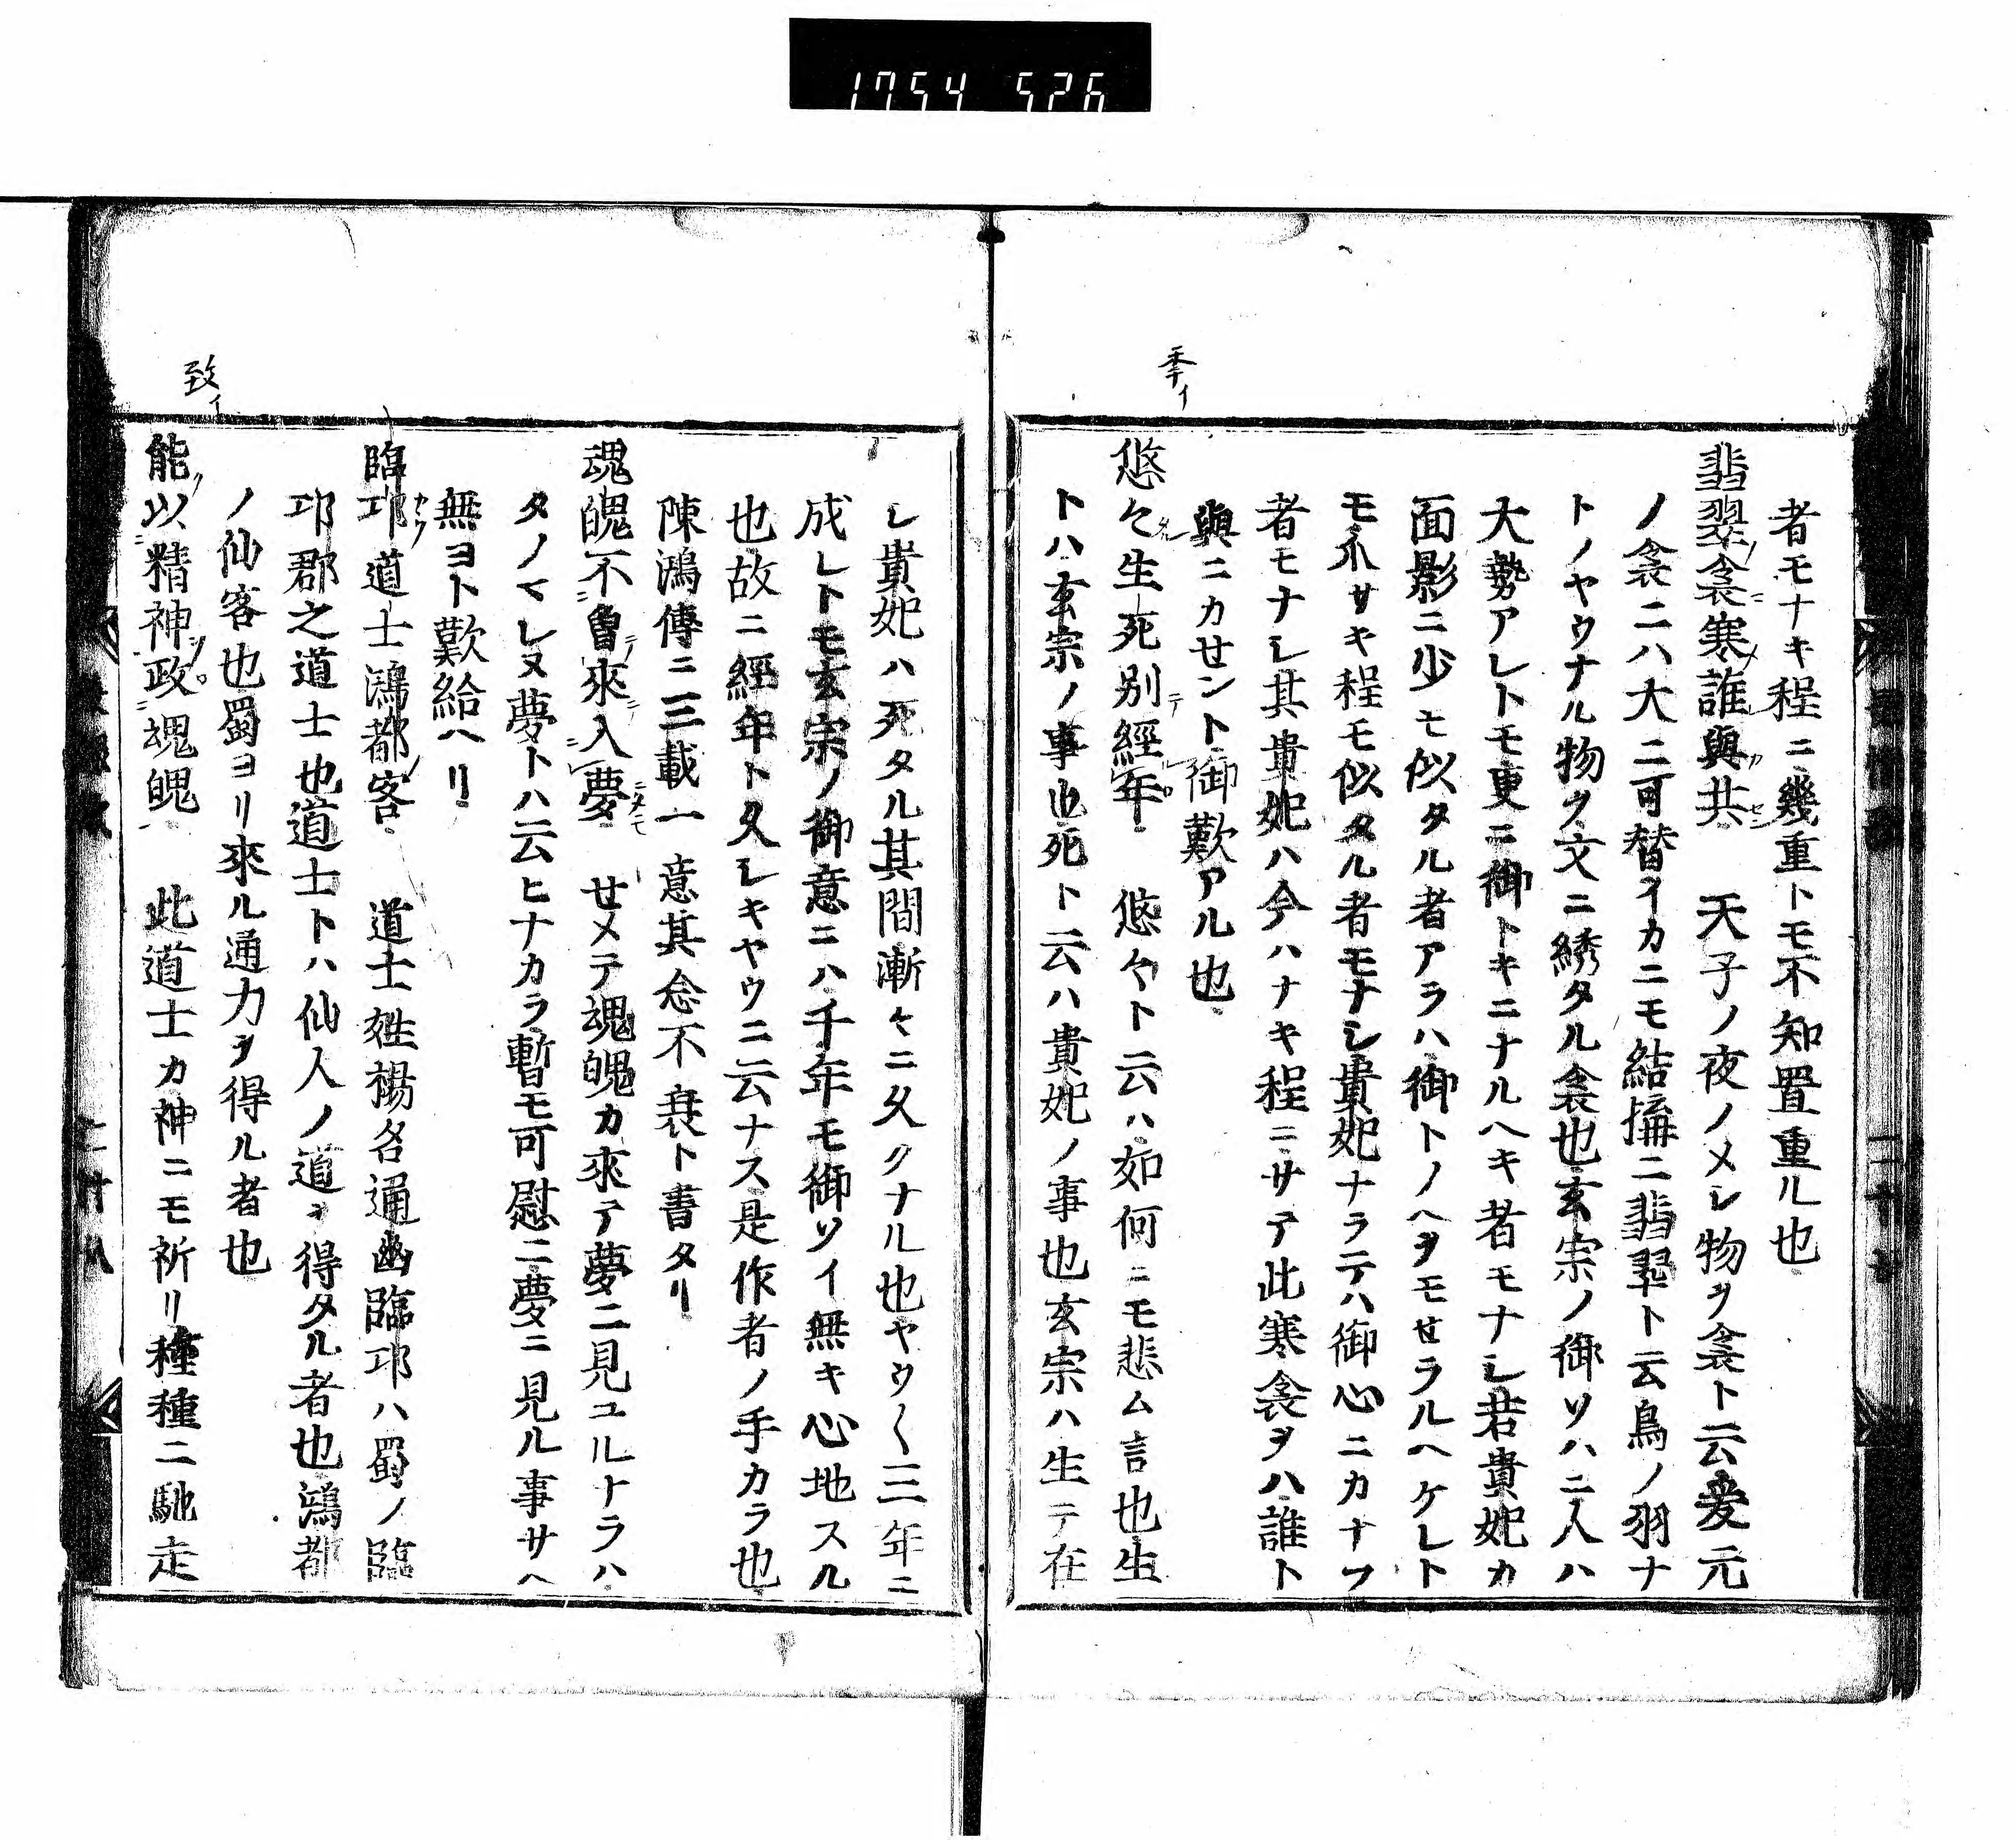 1754 526
季イ
者モナキ程ニ幾重トモ不知置重ル也
翡翠衾寒誰與共 天子ノ夜ノメシ物ヲ衾ト云爰元
ノ衾ニハ大ニ可替イカニモ結搆ニ翡翠ト云鳥ノ羽ナ
トノヤウナル物ク文ニ綉タル衾也玄宗ノ御ソハニ人ハ
大勢アレトモ更ニ御トキニナルヘキ者モナシ若貴妃カ
面影ニ少モ似タル者アラハ御トノヘヲモせラルヘケレト
モ爪サキ程モ似タル者モナシ貴妃ナラテハ御心ニカナフ
者モナシ其貴妃ハ今ハナキ程ニサテ此寒衾ヲハ誰ト
與ニカせント御歎アル也
悠々生死別經年 悠々ト云ハ如何ニモ悲ム言也生
トハ玄宗ノ事也死ト云ハ貴妃ノ事也玄宗ハ生テ在
致イ
シ貴妃ハ死タル其間漸々ニ久クナル也ヤウ〱三年ニ
成レトモ玄宗ノ御意ニハ千年モ御ソイ無キ心地スル
也故ニ經年ト久シキヤウニ云ナス是作者ノ手カラ也
陳鴻傳ニ三載一意其念不衰ト書タリ
魂魄不曾來入夢 せメテ魂魄カ來テ夢ニ見ユルナラハ
タノマレヌ夢トハ云ヒナカラ暫モ可慰ニ夢ニ見ル事サヘ
無ヨト歎給ヘリ
臨邛道士鴻都客 道士姓楊名通幽臨邛ハ蜀ノ臨
邛郡之道士也道士トハ仙人ノ道ヲ得タル者也鴻都
ノ仙客也蜀ヨリ來ル通力ヲ得ル者也
能以精神政魂魄 此道士カ神ニモ祈リ種種ニ馳走